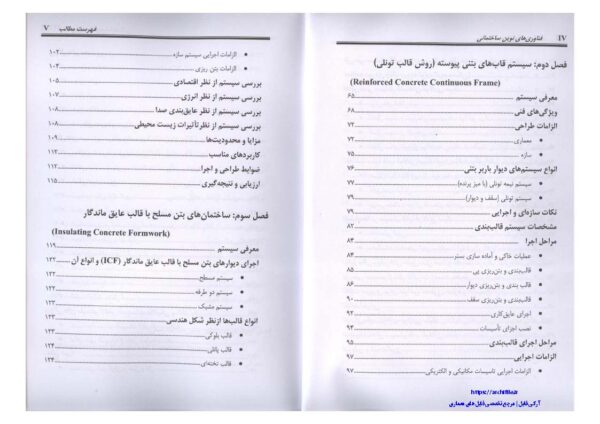 IV فناوری‌های نوین ساختمانی
فصل دوم: سیستم قاب‌های بتنی پیوسته (روش قالب تونلی)
(Reinforced Concrete Continuous Frame)
معرفی سیستم ۶۵
ویژگی‌های فنی ۶۸
الزامات طراحی ۷۲
• معماری ۷۳
• سازه ۷۵
انواع سیستم‌های دیوار باربر بتنی ۷۶
• سیستم نیمه تونلی (یا میز پرنده) ۷۷
• سیستم تونلی (سقف و دیوار) ۷۸
نکات سازه‌ای و اجرایی ۷۹
مشخصات سیستم قالب‌بندی ۸۲
مراحل اجرا ۸۴
• عملیات خاکی و آماده سازی بستر ۸۴
• قالب‌بندی و بتن‌ریزی پی ۸۵
• قالب بندی و بتن‌ریزی دیوار ۸۶
• قالب‌بندی و بتن‌ریزی سقف ۹۰
• اجرای عایق‌کاری ۹۲
• نصب اجزای تأسیسات ۹۴
مراحل اجرای قالب‌بندی ۹۵
الزامات اجرایی ۹۷
• الزامات اجرایی تاسیسات مکانیکی و الکتریکی ۹۷
https://archifile.ir
آرکی فایل | مرجع تخصصی فایل های معماری
فهرست مطالب V
• الزامات اجرایی سیستم سازه ۱۰۲
• الزامات بتن ریزی ۱۰۴
بررسی سیستم از نظر اقتصادی ۱۰۵
بررسی سیستم از نظر انرژی ۱۰۷
بررسی سیستم از نظر عایق‌بندی صدا ۱۰۸
بررسی سیستم از نظر تأثیرات زیست محیطی ۱۰۸
مزایا و محدودیت‌ها ۱۰۹
کاربردهای مناسب ۱۱۲
ضوابط طراحی و اجرا ۱۱۲
ارزیابی و نتیجه‌گیری ۱۱۵
فصل سوم: ساختمان‌های بتن مسلح با قالب عایق ماندگار
(Insulating Concrete Formwork)
معرفی سیستم ۱۱۹
اجرای دیوارهای بتن مسلح با قالب عایق ماندگار (ICF) و انواع آن ۱۲۲
• سیستم مسطح ۱۲۲
• سیستم دو طرفه ۱۲۲
• سیستم مشبک ۱۲۳
انواع قالب‌ها ازنظر شکل هندسی ۱۲۳
• قالب بلوکی ۱۲۳
• قالب پانلی ۱۲۴
• قالب تخته‌ای ۱۲۴